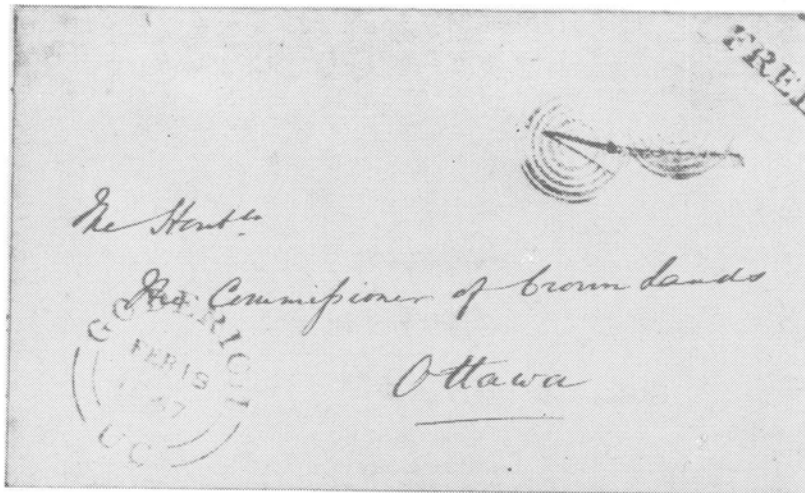 FREE
The Honble
The Commissioner of Crown Lands
Ottawa
GODERICH
FEB 19
U C